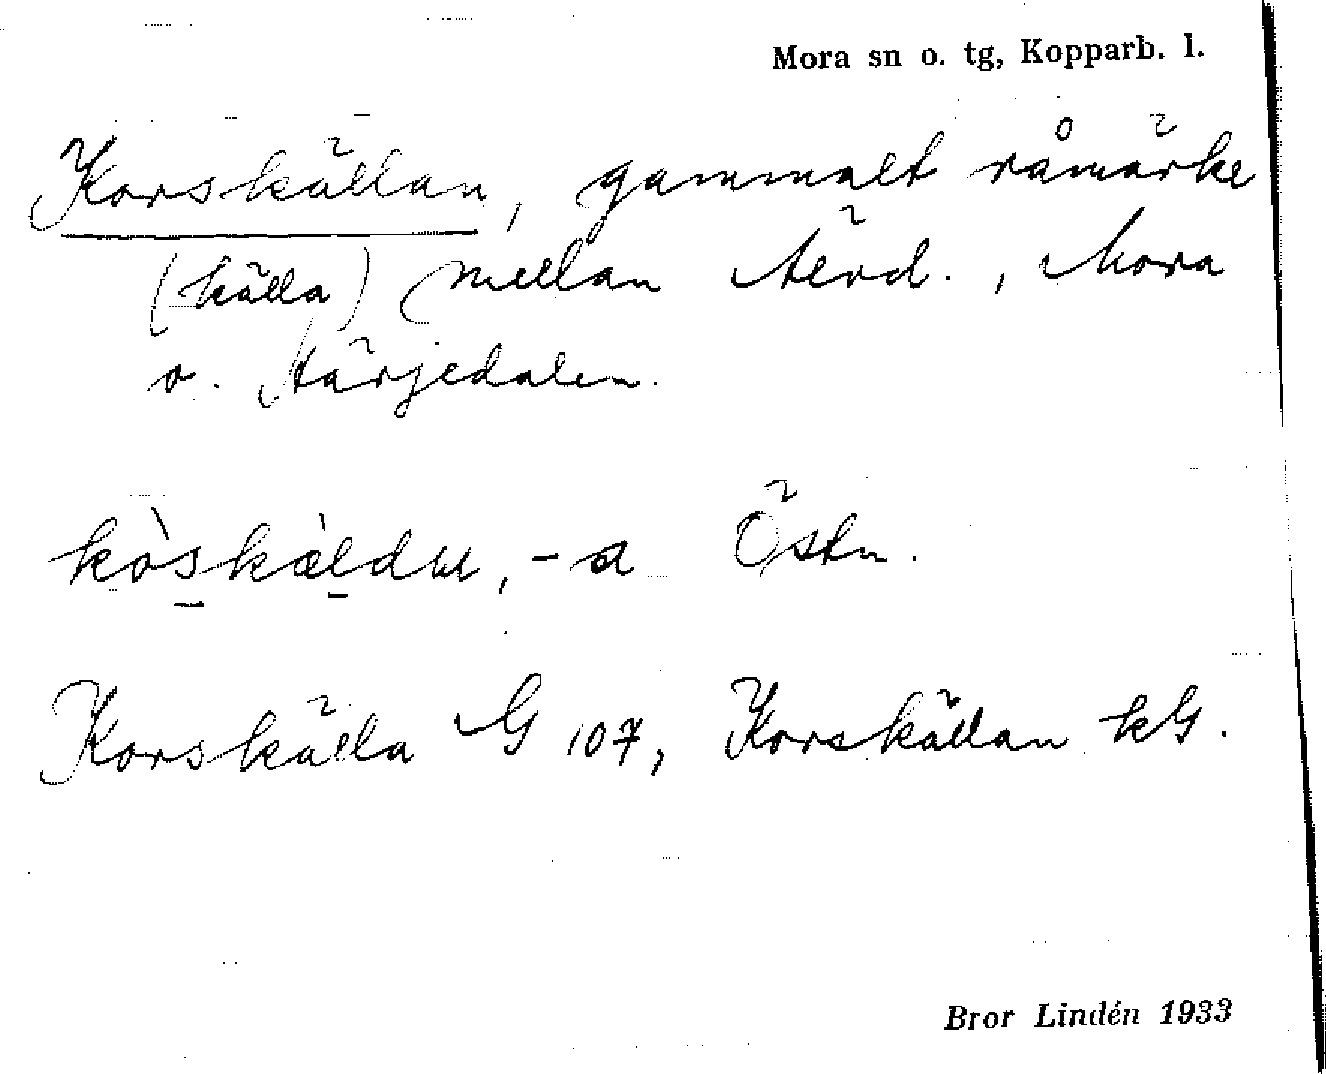 Mora sn o. tg, Kopparb. l.
Korskällan, gammalt råmärke
(källa) mellan Älvd., Mora
o. Härjedalen.
kòskàldu, -a Östn.
Korskälla G 107, Korskällan kG.
Bror Lindén 1933